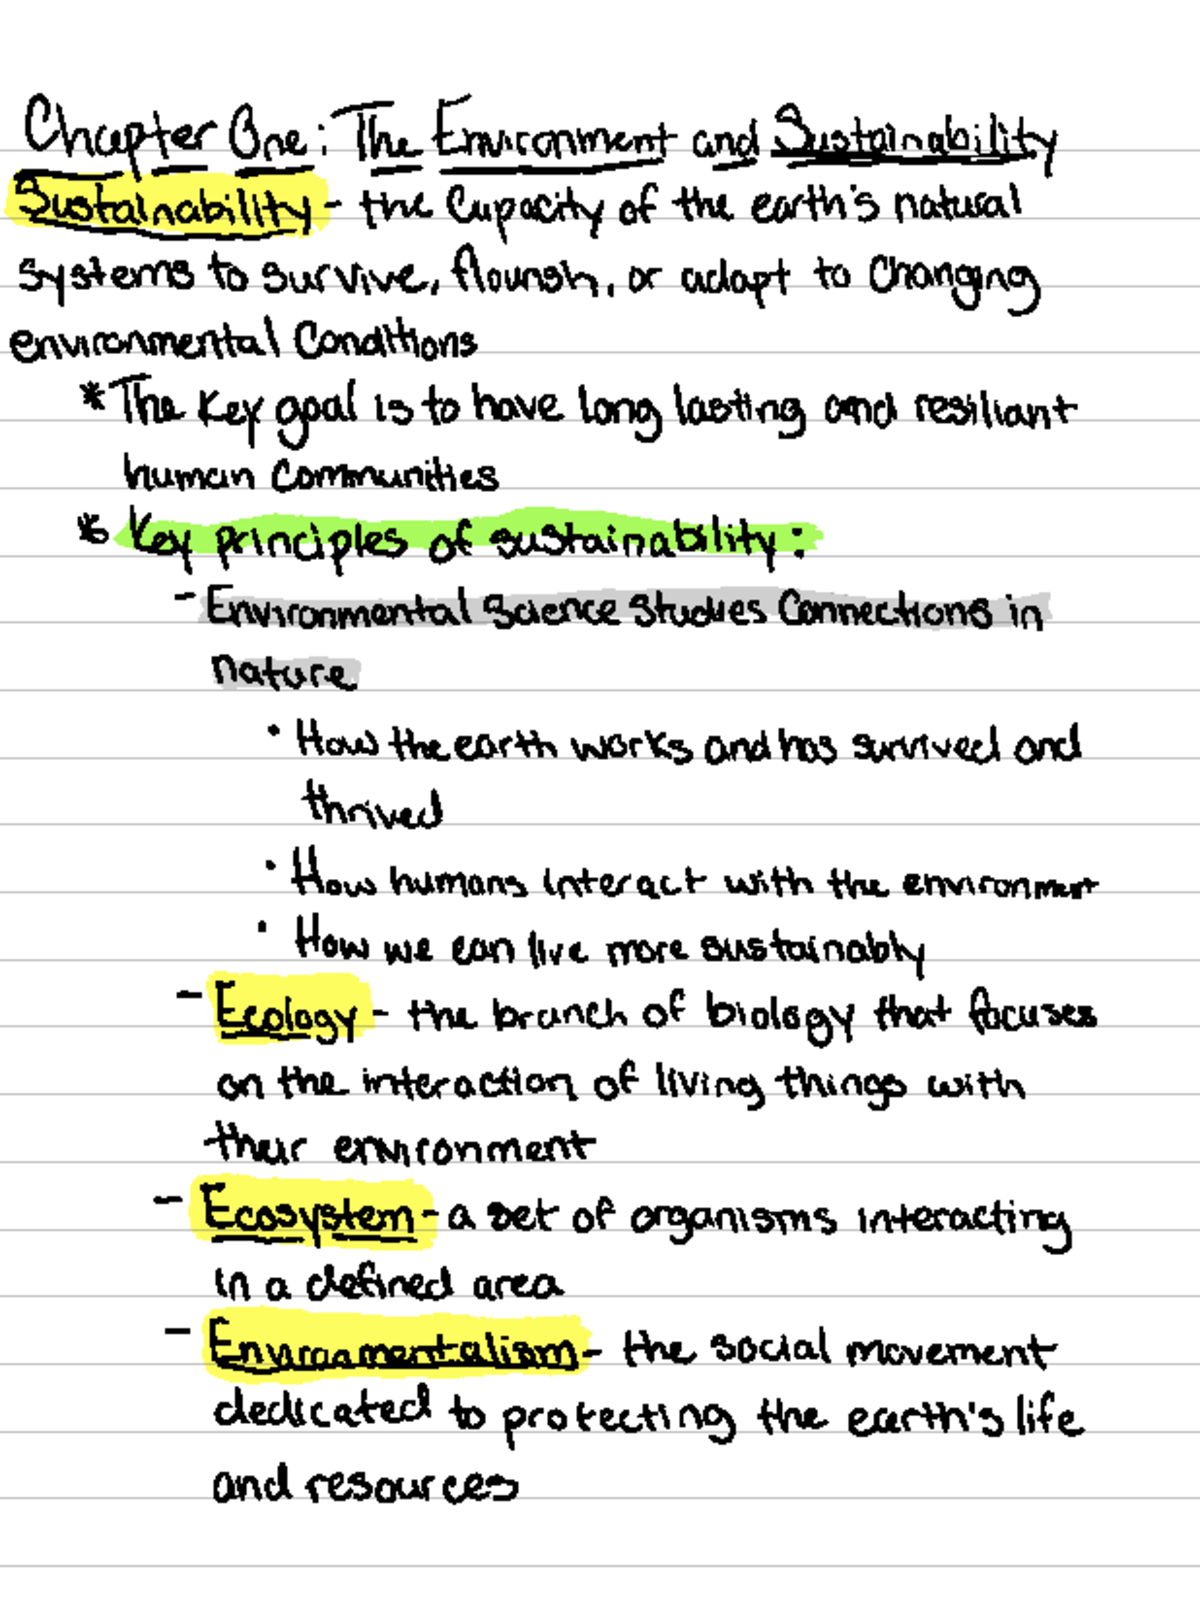 Chapter One: The Environment and Sustainability
Sustainability - the Capacity of the earth's natural
systems to survive, flourish, or adapt to changing
environmental Conditions
* The Key goal is to have long lasting and resiliant
human Communities
* Key principles of sustainability:
- Environmental Science Studies Connections in
nature
• How the earth works and has survived and
thrived
• How humans interact with the environment
• How we can live more sustainably
- Ecology - the branch of biology that focuses
on the interaction of living things with
their environment
- Ecosystem - a set of organisms interacting
in a defined area
- Environmentalism - the social movement
dedicated to protecting the earth's life
and resources